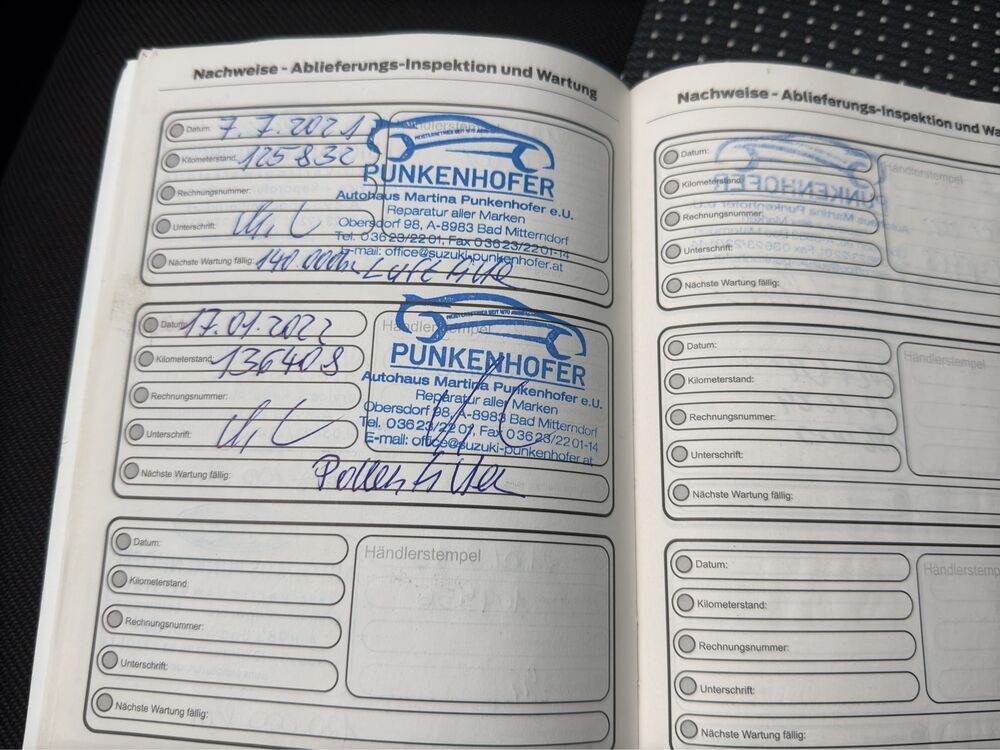 Nachweise - Ablieferungs-Inspektion und Wartung
Datum: 7.7.2021
Kilometerstand: 125832
Rechnungsnummer:
Unterschrift:
Nächste Wartung fällig: 140.000km Luftfilter
Händlerstempel
MEISTERBETRIEB SEIT 1970
PUNKENHOFER
Autohaus Martina Punkenhofer e.U.
Reparatur aller Marken
Obersdorf 98, A-8983 Bad Mitterndorf
Tel. 03623/22 01, Fax 03623/22 01-14
E-mail: office@suzuki-punkenhofer.at
Datum: 17.01.2022
Kilometerstand: 136408
Rechnungsnummer:
Unterschrift:
Nächste Wartung fällig: Pollenfilter
Händlerstempel
MEISTERBETRIEB SEIT 1970
PUNKENHOFER
Autohaus Martina Punkenhofer e.U.
Reparatur aller Marken
Obersdorf 98, A-8983 Bad Mitterndorf
Tel. 03623/22 01, Fax 03623/22 01-14
E-mail: office@suzuki-punkenhofer.at
Datum:
Kilometerstand:
Rechnungsnummer:
Unterschrift:
Nächste Wartung fällig:
Händlerstempel
Nachweise - Ablieferungs-Inspektion und Wa
Datum:
Kilometerstand:
Rechnungsnummer:
Unterschrift:
Nächste Wartung fällig:
Händlerstempel
Datum:
Kilometerstand:
Rechnungsnummer:
Unterschrift:
Nächste Wartung fällig:
Händlerstempel
Datum:
Kilometerstand:
Rechnungsnummer:
Unterschrift:
Nächste Wartung fällig:
Händlerstemp